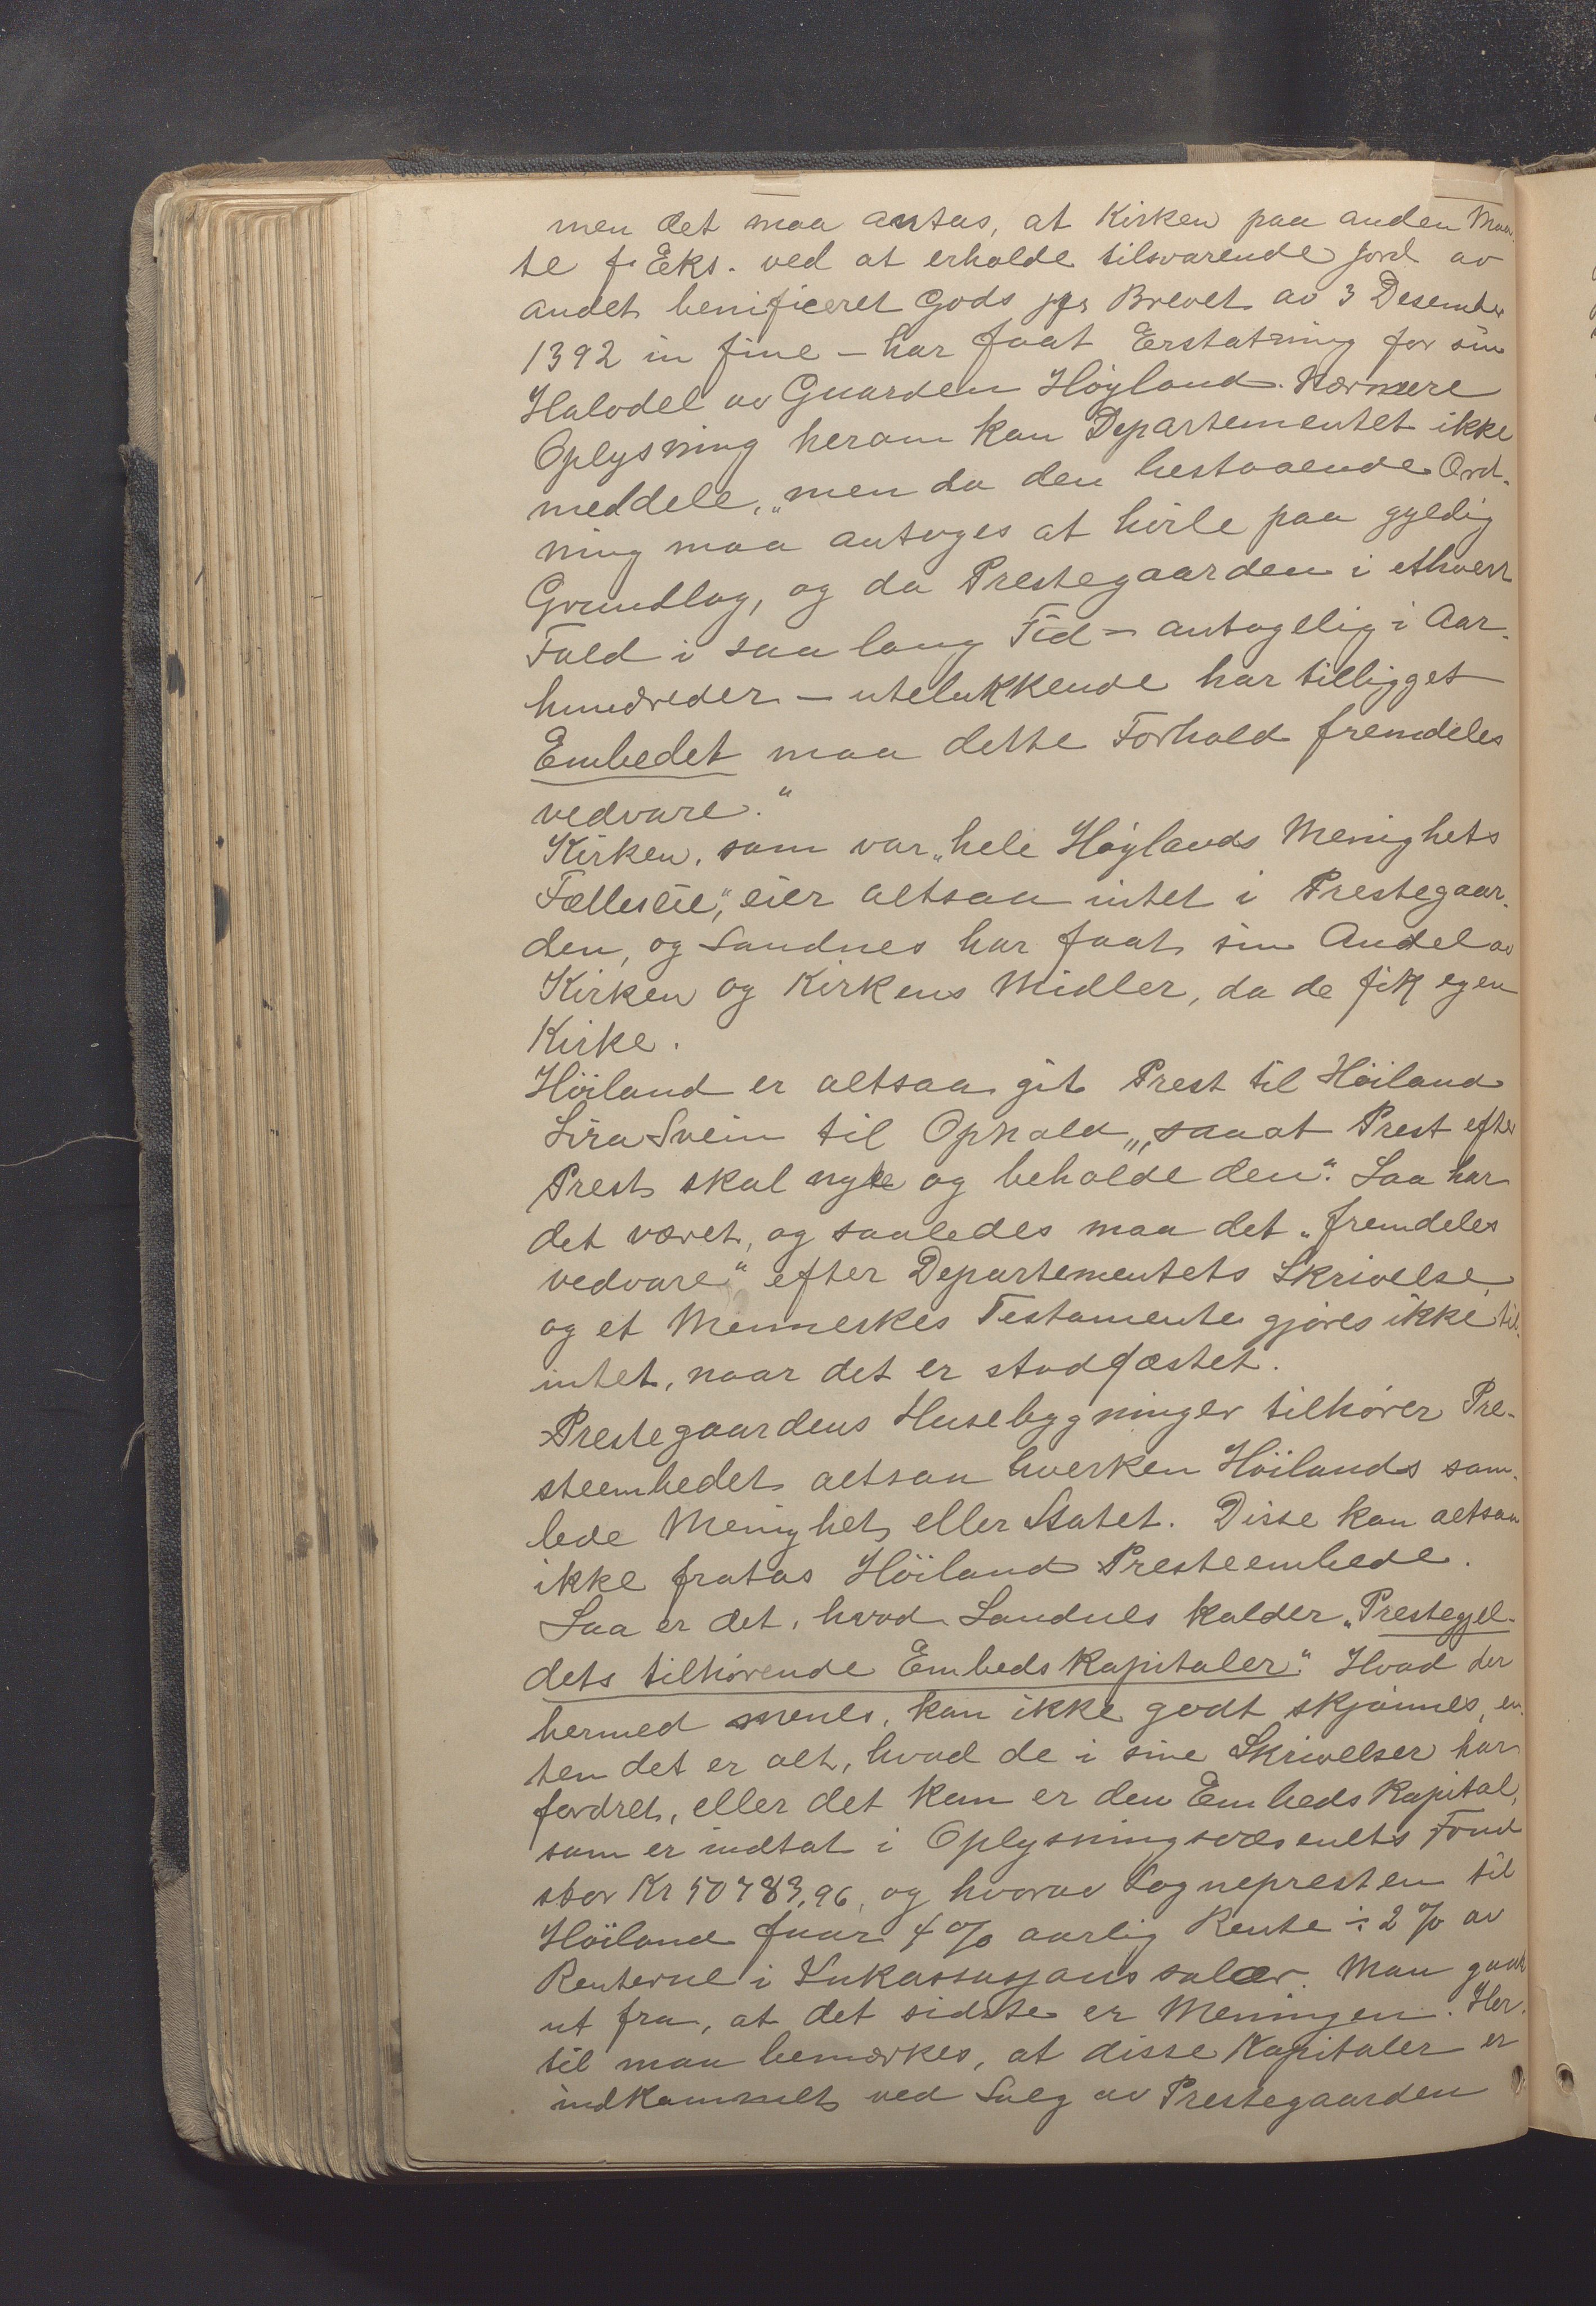 men det maa antas, at Kirken paa anden Maa-
te f. Eks. ved at erholde tilsvarende Jord av
andet benificeret Gods jfr Brevet av 3 Desember
1392 in fine – har faat Erstatning for sin
Halvdel av Gaarden Høyland. Nærmere
Oplysning herom kan Departementet ikke
meddele, „men da den bestaaende Ord-
ning maa antages at hvile paa gyldig
Grundlag, og da Prestegaarden i ethvert
Fald i saa lang Tid – antagelig i Aar-
hundreder – utelukkende har tilligget
Embedet maa dette Forhold fremdeles
vedvare.“
Kirken, som var „hele Høylands Menighets
Fælleseie“, eier altsaa intet i Prestegaar-
den, og Sandnes har faat sin Andel av
Kirken og Kirkens Midler, da de fik egen
Kirke.
Höiland er altsaa git Prest til Höiland
Sira Svein til Ophold „saaat Prest efter
Prest skal nyte og beholde den“. Saa har
det været, og saaledes maa det „fremdeles
vedvare“ efter Departementets Skrivelse,
og et Menneskes Testamente gjøres ikke til
intet, naar det er stadfæstet.
Prestegaardens Husebygninger tilhører Pre-
steembedet altsaa hverken Höilands sam-
lede Menighet eller Statet. Disse kan altsaa
ikke fratas Höiland Presteembede.
Saa er det, hvad Sandnes kalder „Prestegjel-
dets tilhørende Embedskapitaler“. Hvad der
hermed menes, kan ikke godt skjønnes, en-
ten det er alt, hvad de i sine Skrivelser har
fordret, eller det kun er den Embedskapital,
som er indtat i Oplysningsvæsenets Fond
stor Kr 50783,96, og hvorav Sognepresten til
Höiland faar 4 % aarlig Rente ÷ 2 % av
Renterne i Inkassasjonssalær. Man gaar
ut fra, at det sidste er Meningen. Her-
til maa bemærkes, at disse Kapitaler er
indkommet ved Salg av Prestegaarden